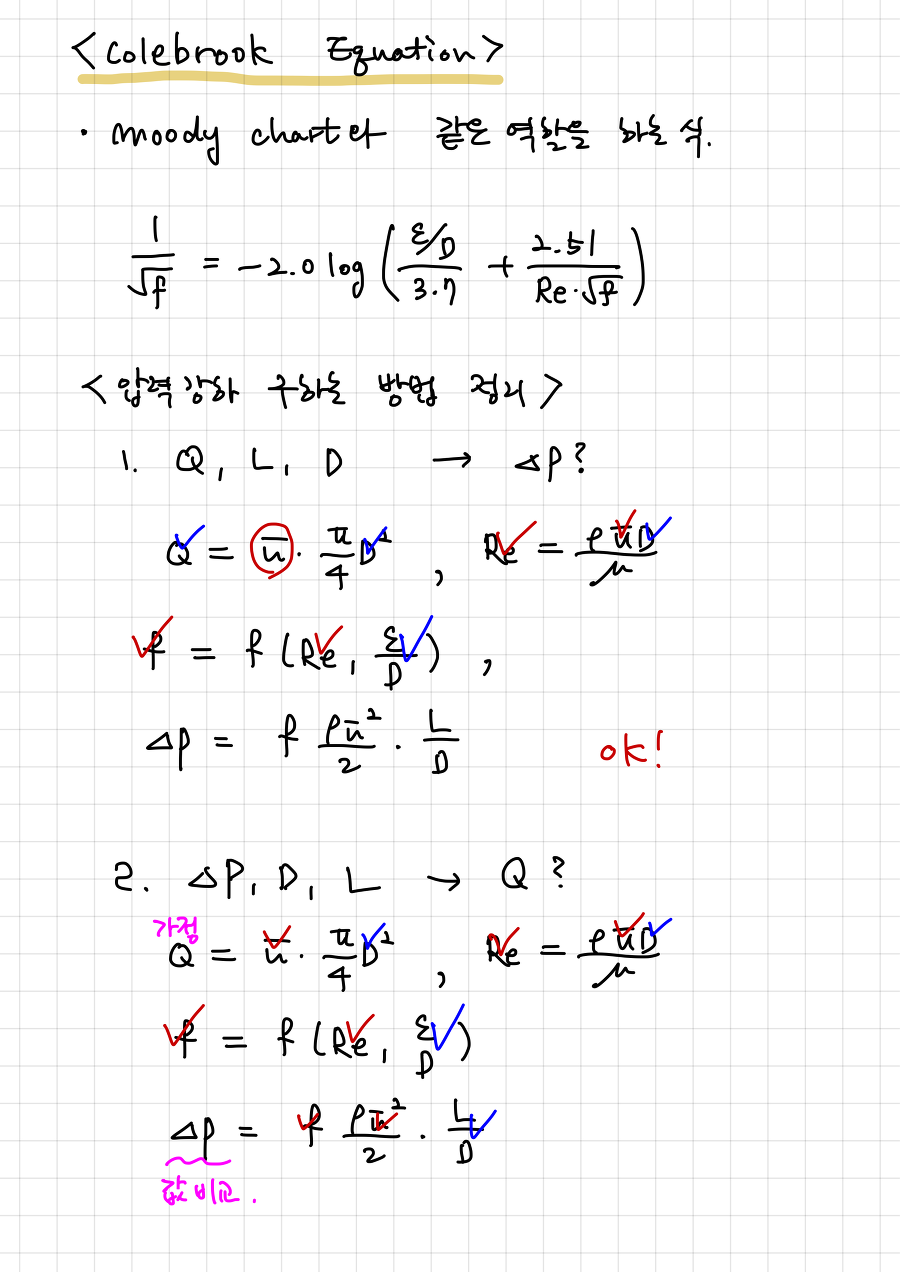 <Colebrook Equation>
· moody chart와 같은 역할을 하는 식.
1/√f = -2.0 log ( (ε/D)/3.7 + 2.51/(Re·√f) )
<압력강하 구하는 방법 정리>
1. Q, L, D → ΔP?
Q = ū · π/4 D², Re = ρūD/μ
f = f (Re, ε/D),
Δp = f ρū²/2 · L/D OK!
2. ΔP, D, L → Q?
가정
Q = ū · π/4 D², Re = ρūD/μ
f = f (Re, ε/D)
Δp = f ρū²/2 · L/D
값 비교.